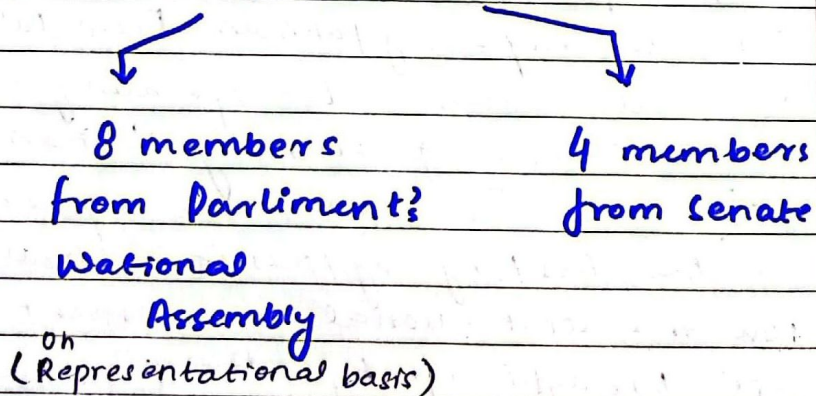 8 members
from Parliment's
National
Assembly
(on Representational basis)
4 members
from Senate